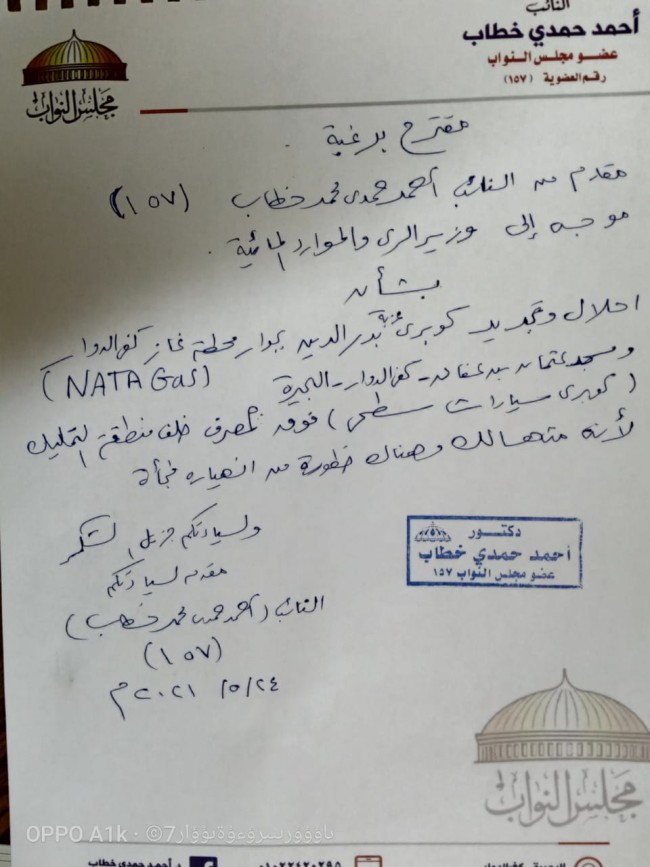 النائب
أحمد حمدي خطاب
عضو مجلس النواب
رقم العضوية (١٥٧)
مجلس النواب
مقترح برغبة .
مقدم من النائب أحمد حمدى محمد خطاب (١٥٧)
موجه إلى وزير الرى والموارد المائية .
بشأن
احلال وتجديد كوبرى عزبة بدر الدين بجوار محطة غاز كفر الدوار
(NATA Gas)
ومسجد عثمان بن عفان - كفر الدوار - البحيرة
(كوبرى سيارات سطحى) فوق مصرف خلف منطقة التمليك
لأنه متهالك وهناك خطورة من انهياره فجأة
ولسيادتكم جزيل الشكر
مقدمه لسيادتكم
النائب (أحمد حمدى محمد خطاب)
(١٥٧)
٢٤/٥/٢٠٢١م
دكتور
أحمد حمدي خطاب
عضو مجلس النواب ١٥٧
مجلس النواب
OPPO A1k
د.أحمد حمدى خطاب